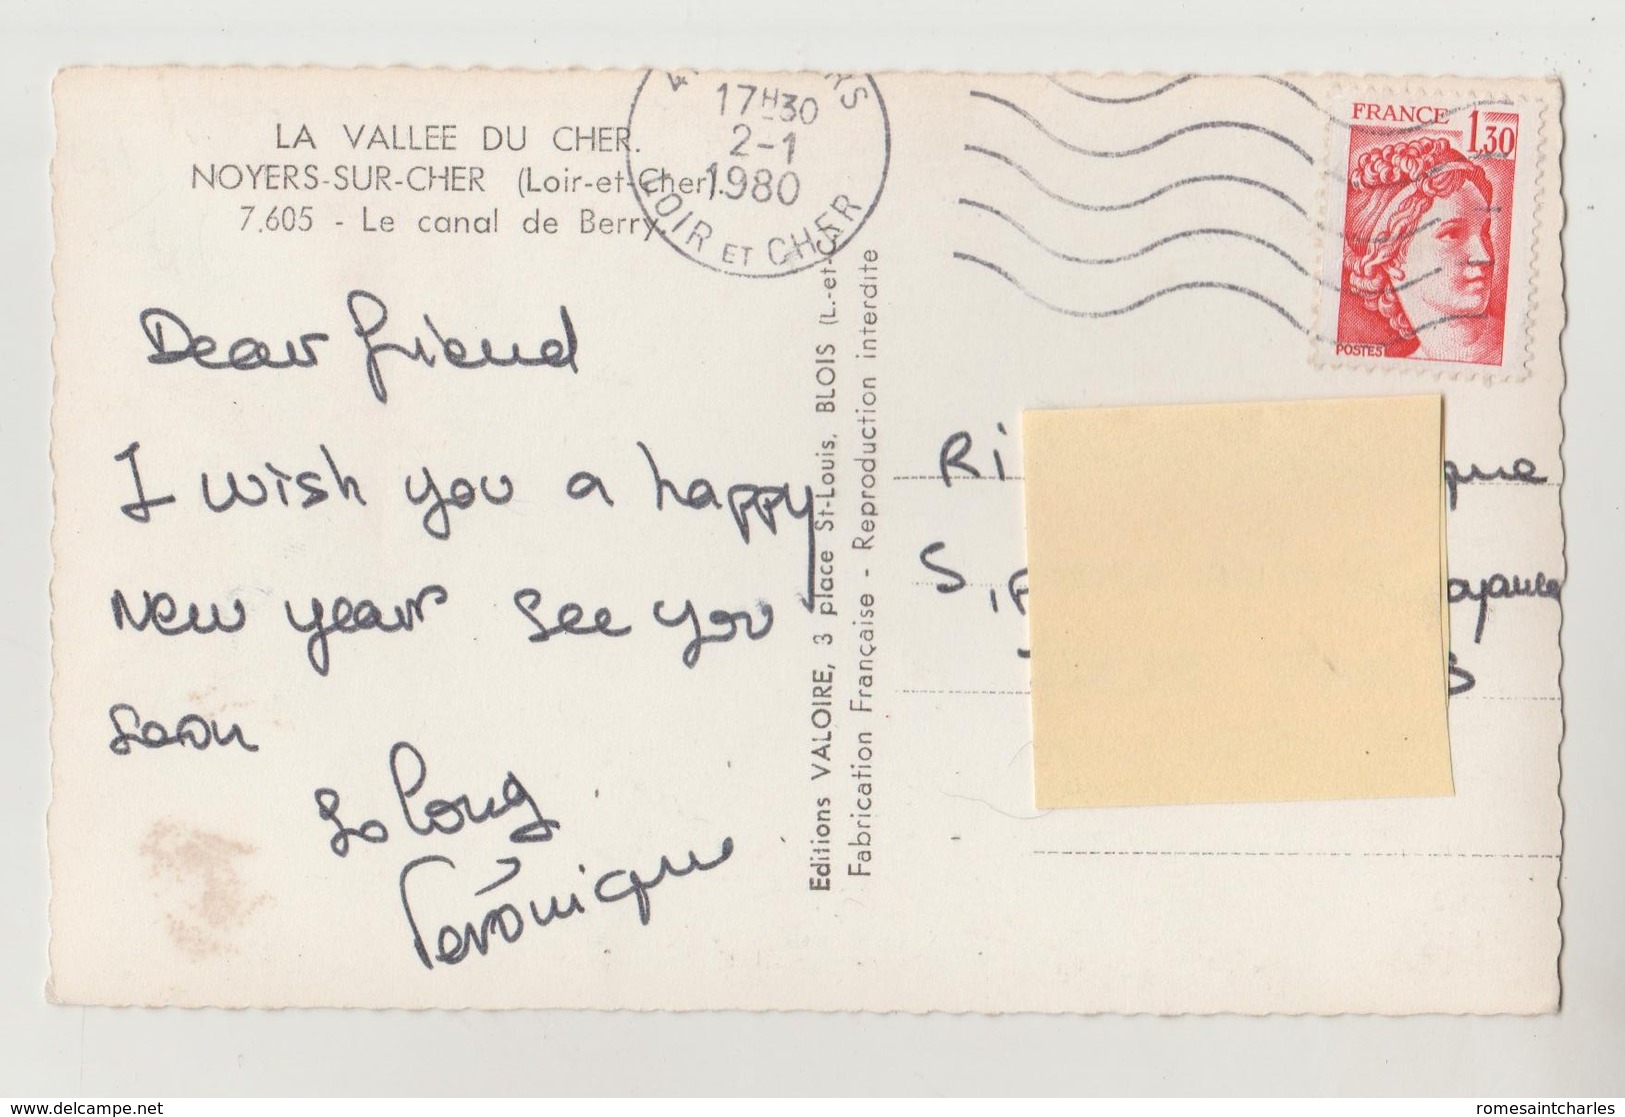 LA VALLEE DU CHER.
NOYERS-SUR-CHER (Loir-et-Cher).
7.605 - Le canal de Berry.
17H30
2-1
1980
LOIR ET CHER
FRANCE
1,30
POSTES
Dear friend
I wish you a happy
New year see you
soon
So long
Véronique
Editions VALOIRE, 3 place St-Louis, BLOIS (L.-et-C.)
Fabrication Française - Reproduction interdite
Ri
que
S
http://www.delcampe.net
romesaintcharles